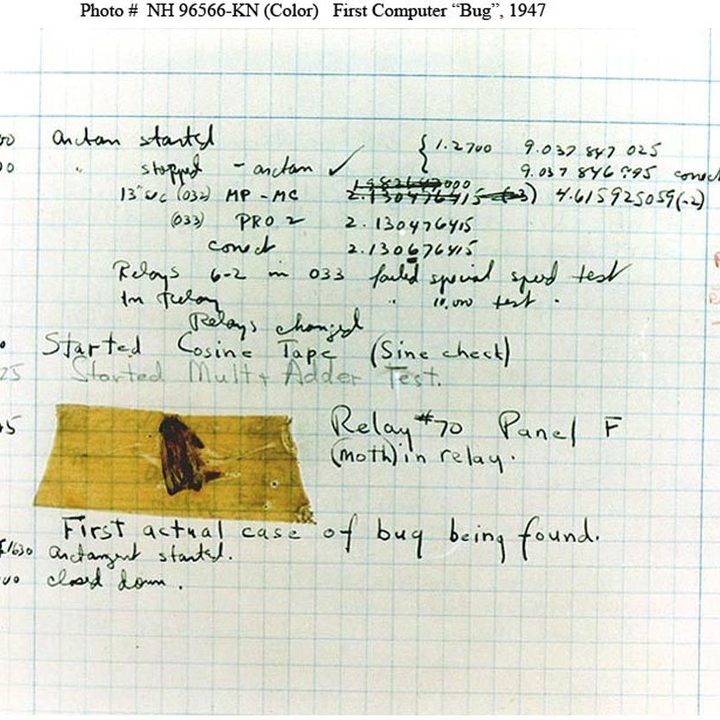 Photo # NH 96566-KN (Color) First Computer “Bug”, 1947
00 arctan started { 1.2700 9.037 847 025
0 " stopped - arctan ✓ 9.037 846 995 correct
13" uc (032) MP - MC 2.130476415 (-3) 4.615925059(-2)
(033) PRO 2 2.130476415
correct 2.130676415
Relays 6-2 in 033 failed special speed test
In relay " 10,000 test .
Relays changed
Started Cosine Tape (Sine check)
25 Started Mult + Adder Test.
5 Relay #70 Panel F
(moth) in relay.
First actual case of bug being found.
1630 arctangent started.
00 closed down .